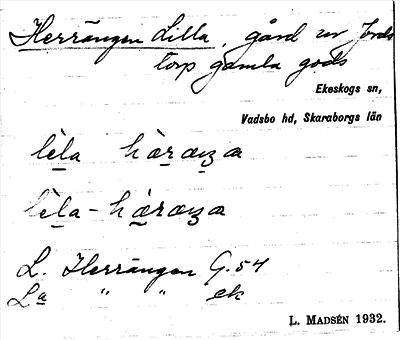 Herrängen Lilla, gård ur Jords
torp gamla gods
Ekeskogs sn,
Vadsbo hd, Skaraborgs län
lèla hæ̀raŋa
lèla-hæ̀raŋa
L. Herrängen G.54
La " " ek
L. MADSÉN 1932.